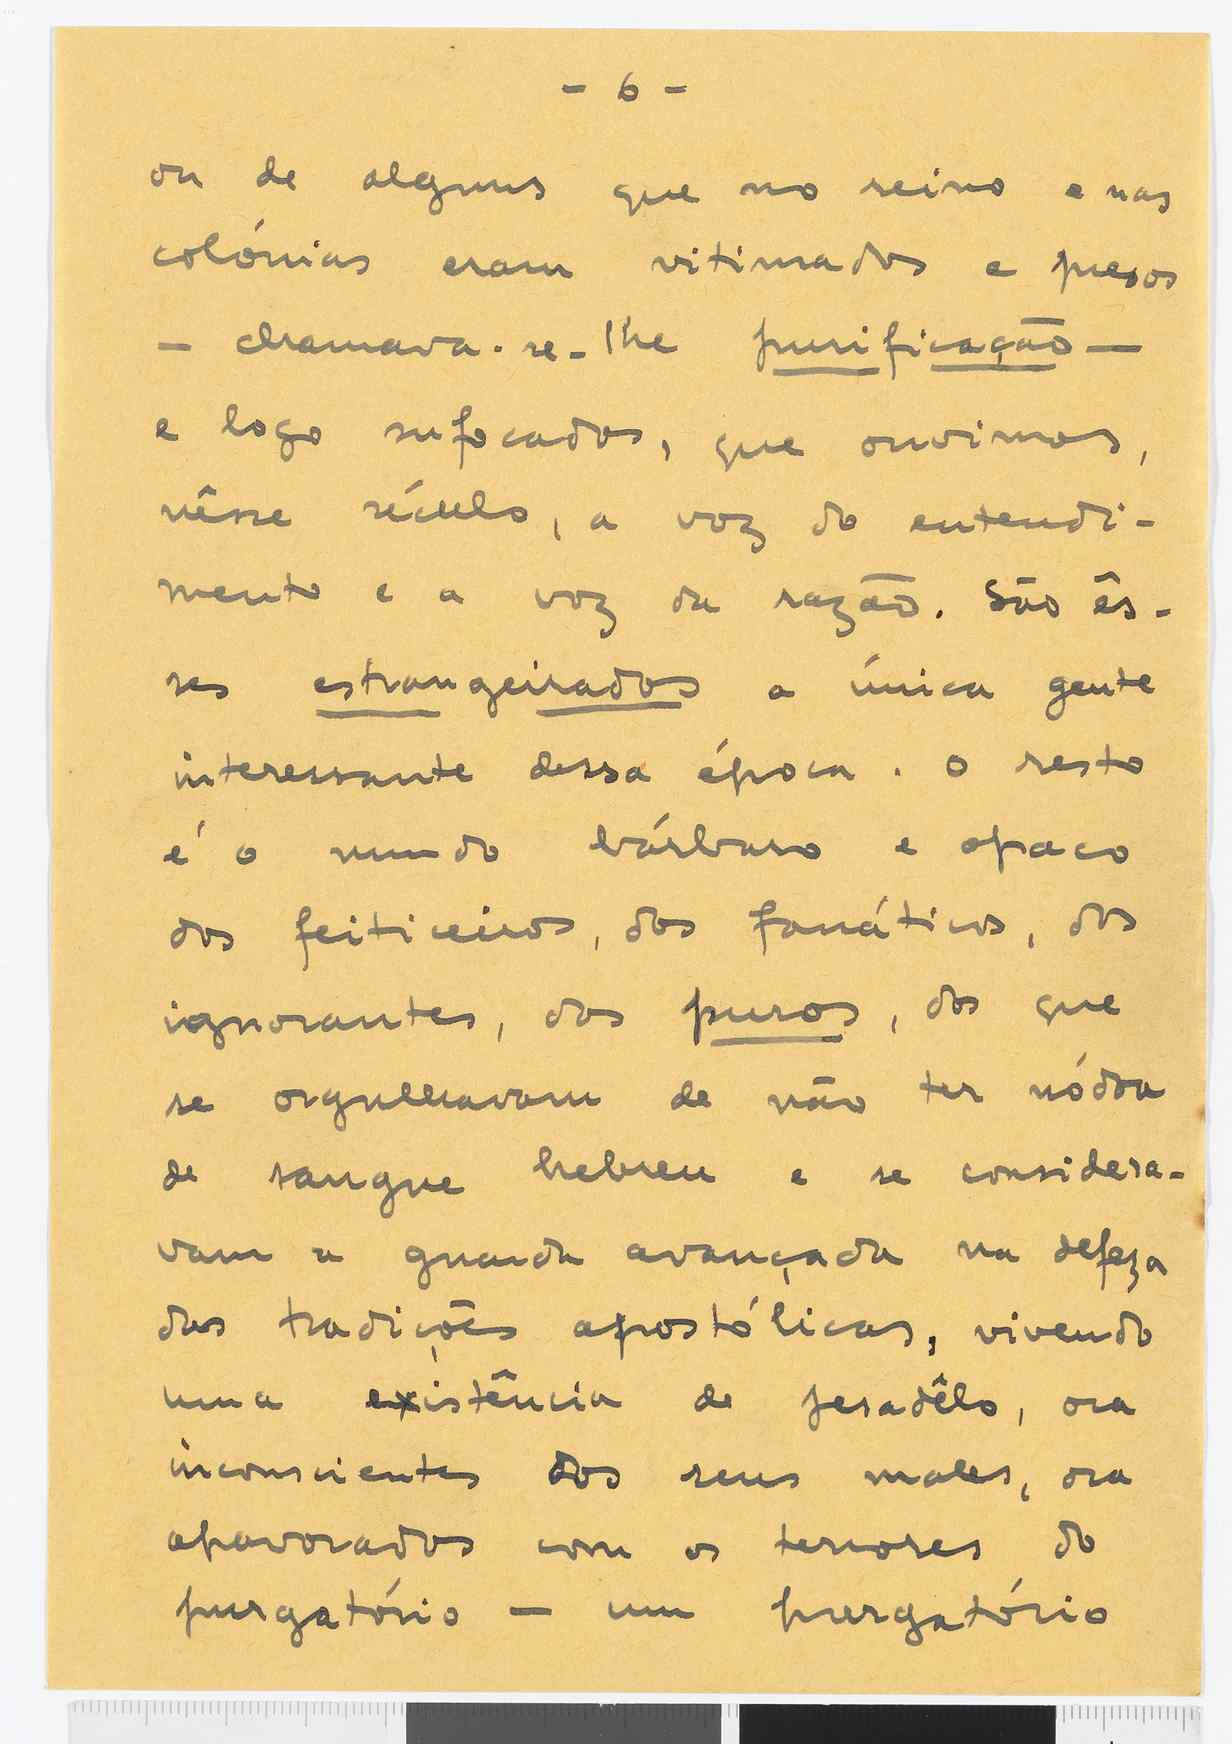 - 6 -
ou de alguns que no reino e nas
colónias eram vitimados e presos
— chamava-se-lhe purificação —
e logo sufocados, que ouvimos,
nêsse século, a voz do entendi-
mento e a voz da razão. São ês-
ses estrangeirados a única gente
interessante dessa época. O resto
é o mundo bárbaro e opaco
dos feiticeiros, dos fanáticos, dos
ignorantes, dos puros, dos que
se orgulhavam de não ter nódoa
de sangue hebreu e se considera-
vam a guarda avançada na defeza
das tradições apostólicas, vivendo
uma existência de pesadêlo, ora
inconscientes dos seus males, ora
apavorados com os terrores do
purgatório — um purgatório